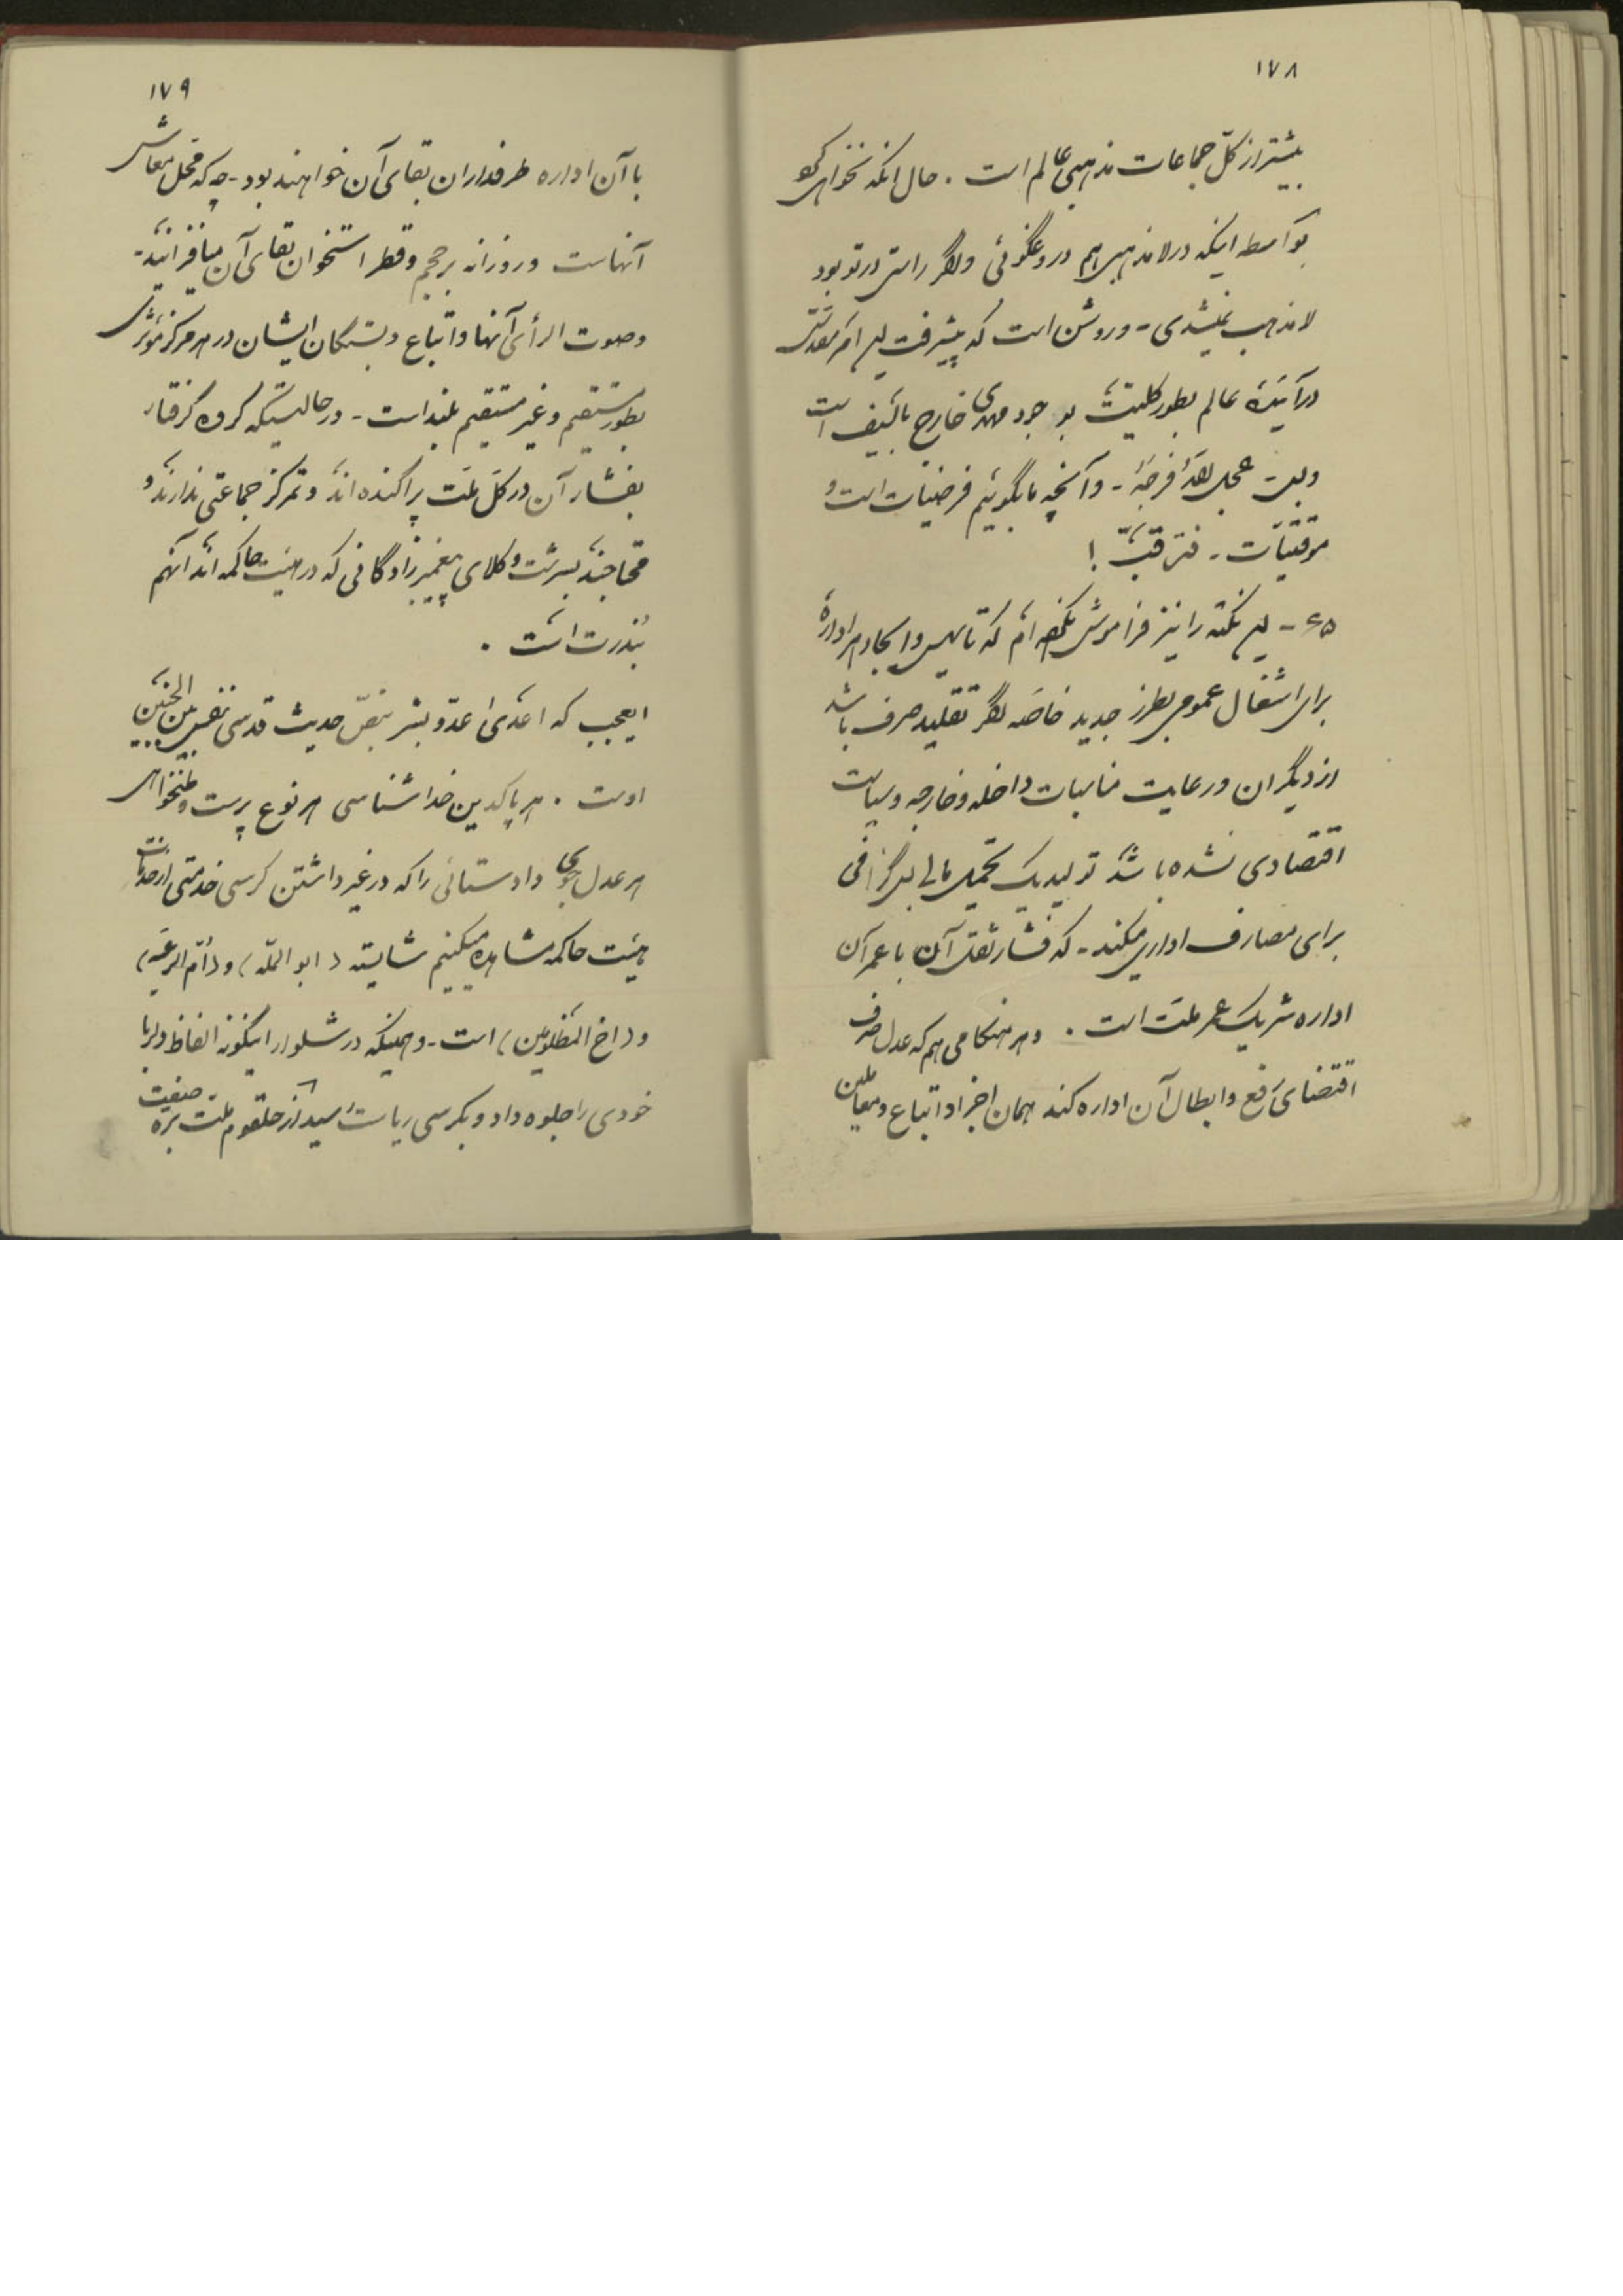 ۱۷۸
بیشتر از کلّ جماعات مذهبی عالم است . حال آنکه نخواهی
بواسطه اینکه در لامذهبی هم دروغگوئی واگر راستی در تو بود
لامذهب نمیشدی - وروشن است که پیشرفت این امر مقدّس
در آینده عالم بطور کلیّت بوجود مهدی خارج
وبس - عجل الله فرجه - وآنچه ما بگوئیم فرضیات است و
موقتیّات - فترقّب !
۶۵ - این نکته را نیز فراموش نکرده‌ام که تأسیس وایجاد هر ادارهٔ
برای اشغال عمومی بطرز جدید خاصّه اگر تقلید صرف باشد
از دیگران ورعایت مناسبات داخله وخارجه وسیاست
اقتصادی نشده باشد تولید یک تحمیل مالی گزافی
برای مصارف اداری میکند - که فشار ثقل آن با عمر آن
اداره شریک عمر ملّت است . وهر هنگامی هم که عدل صرف
اقتضای رفع وابطال آن اداره کند همان اجزا واتباع ومعاملین
۱۷۹
با آن اداره طرفداران بقای آن خواهند بود - چه که محل معاش
آنهاست وروزانه بر حجم وقطر استخوان بقای آن میافزایند -
وصوت الرأی آنها واتباع وبستگان ایشان در هر مرکز مؤثری
بطور مستقیم وغیر مستقیم بلند است - ورحالیستکه گروه گرفتار
بفشار آن در کل ملّت پراکنده‌اند وتمرکز جماعتی ندارند و
محتاجند بسرشت وکلای پیغمبرزادگانی که در هیئت حاکمه‌اند آنهم
بندرت است .
ایعجب که اعدی عدوّ بشر بنصّ حدیث قدسی نفس بین الجنبین
اوست . هر پاکدین خداشناسی هر نوع پرست وطنخواهی
هر عدل جوی دادستانی را که در غیر داشتن کرسی خدمتی از خدمات
هیئت حاکمه مشاهده میکنیم شایسته ( ابو الملّه ) و ( أم الرعیّه )
و ( اخ المظلومین ) است - وهمینکه در شلوار اینگونه الفاظ دلربا
خودی را جلوه داد وبکرسی ریاست رسید از حلقوم ملّت بره صفت